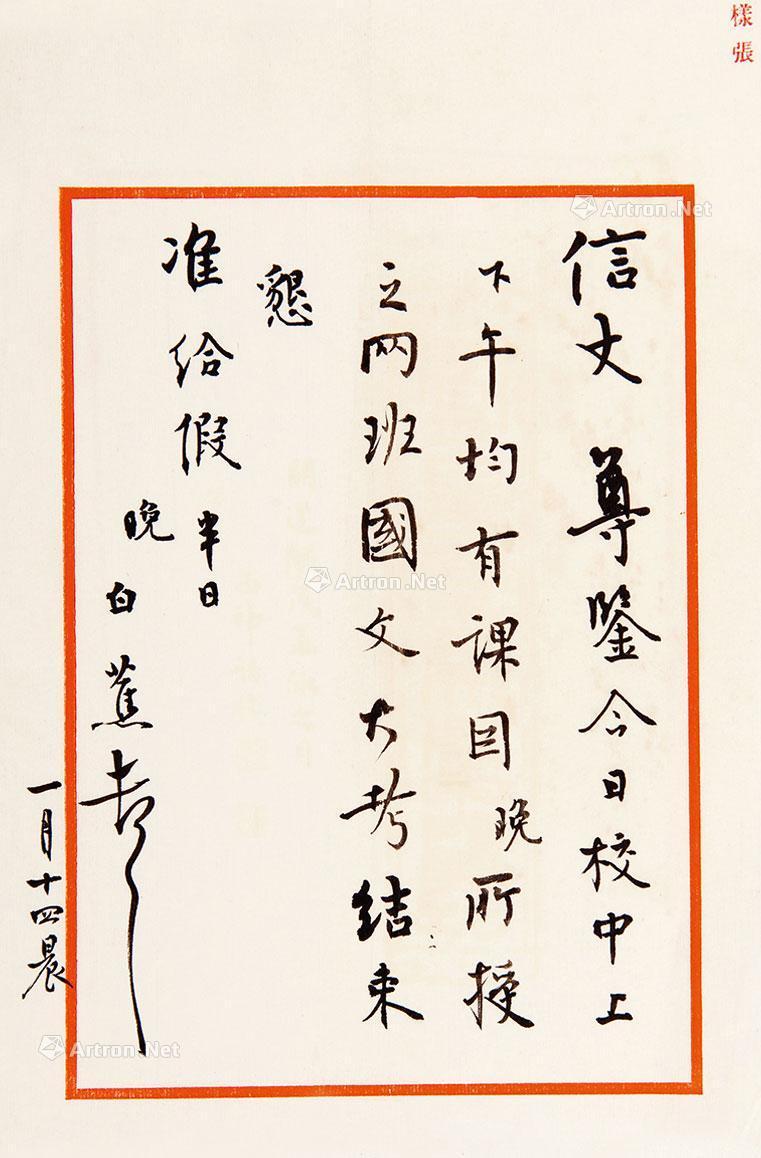 樣張
信丈 尊鑒今日校中上
下午均有課因晚所授
之兩班國文大考結束
懇
准給假半日
晚白蕉
一月十四晨
Artron.Net
Artron.Net
Artron.Net